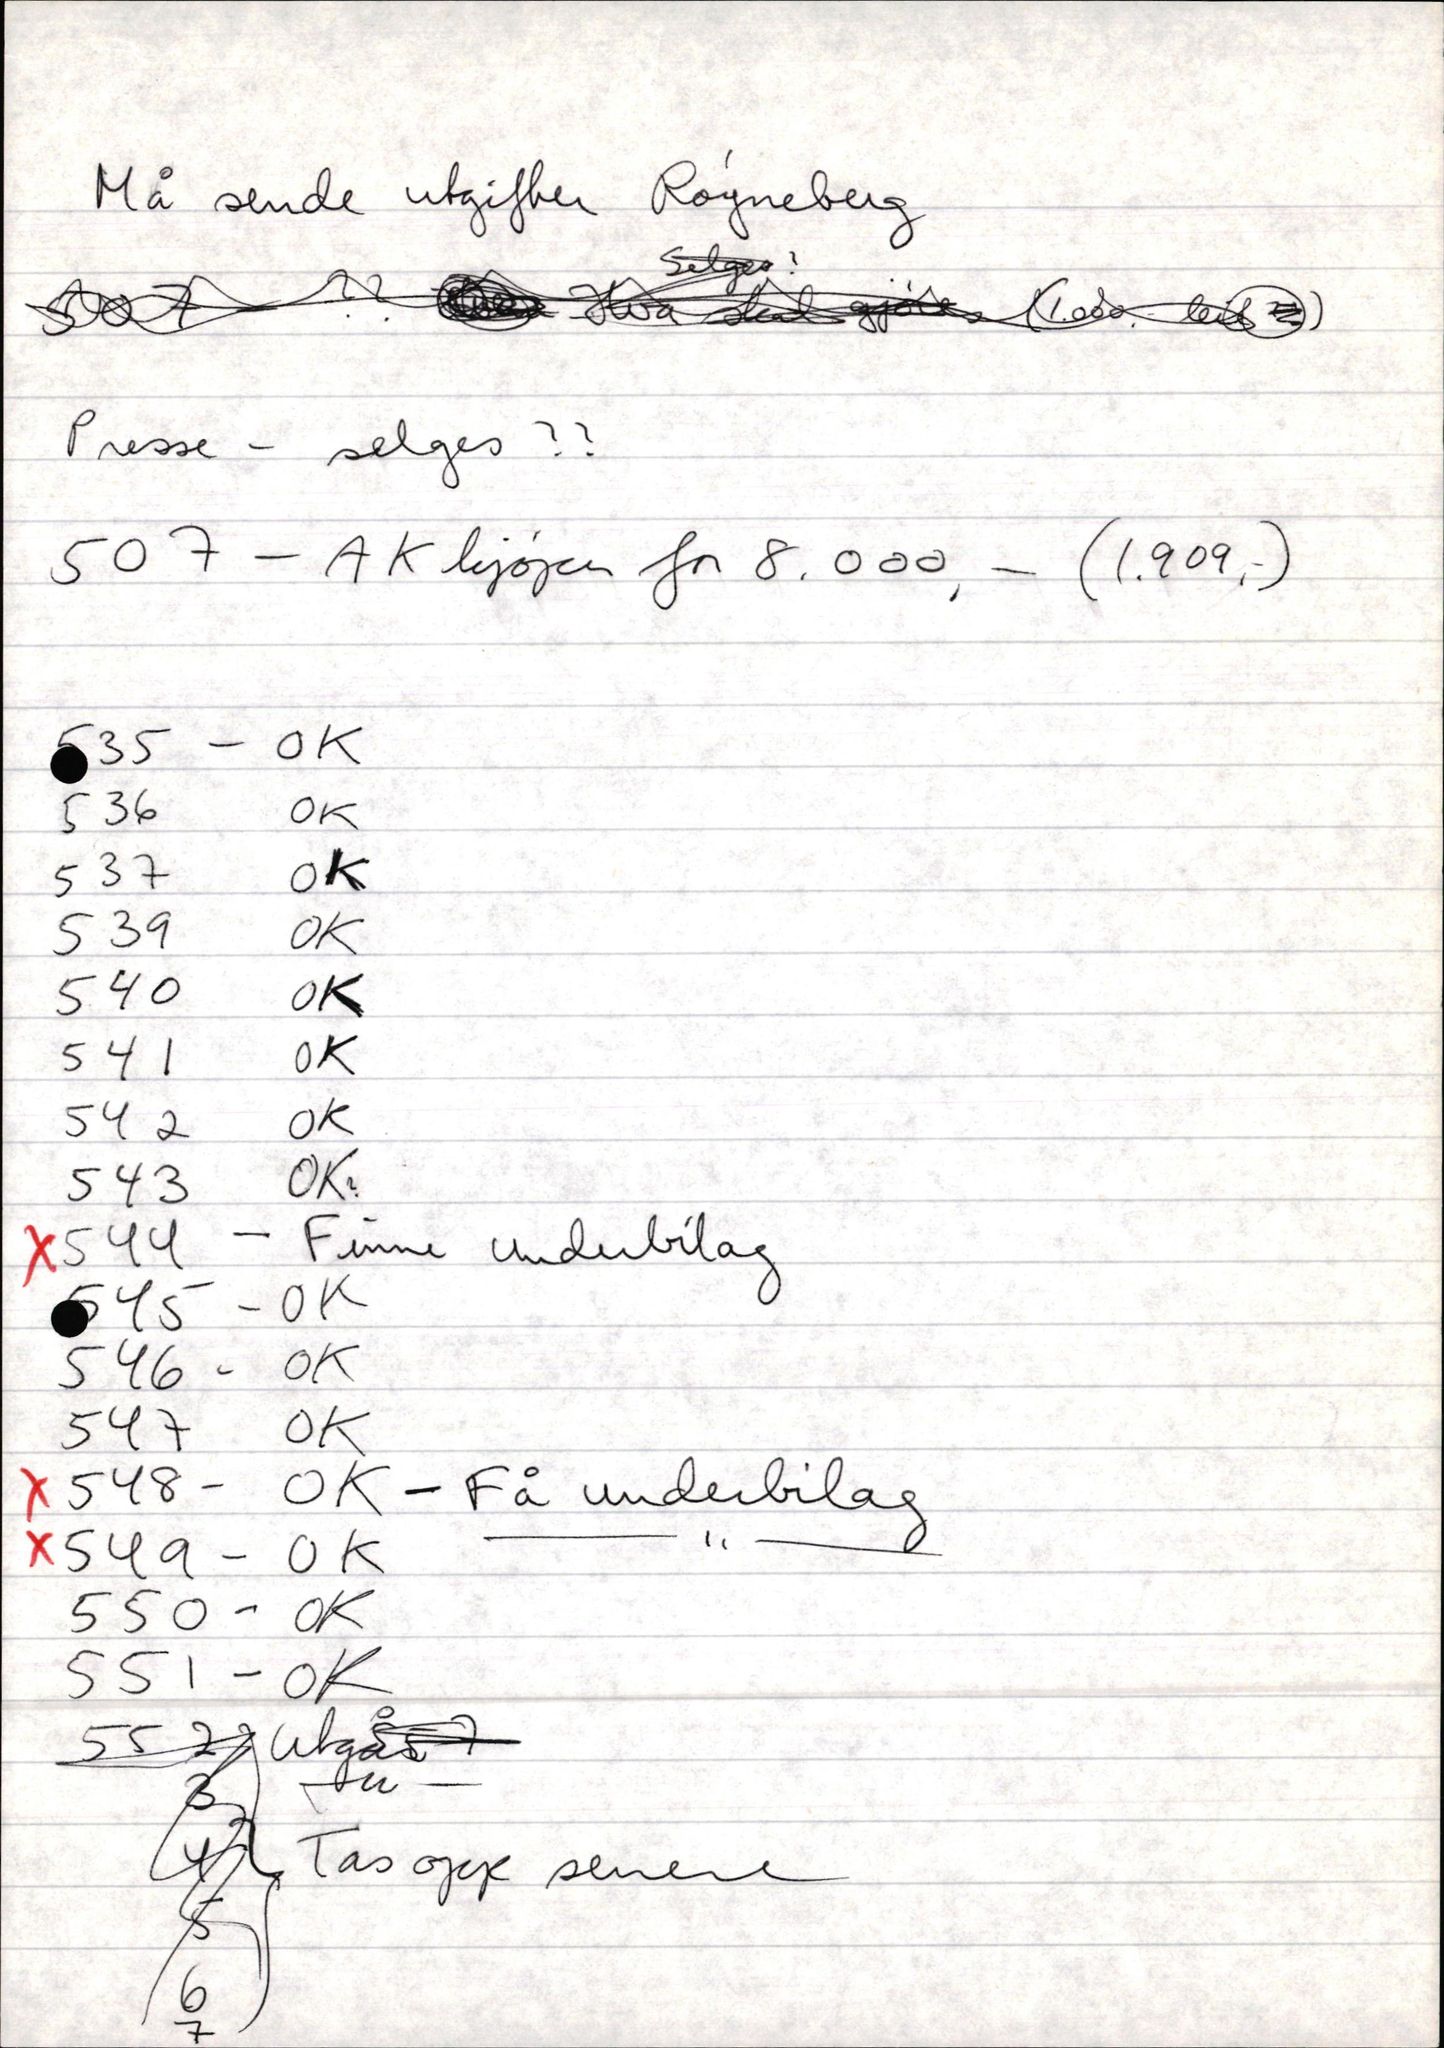 Må sende utgifter Røyneberg
Selges?
507 ?? Hva skal gjøres (1.000,-
Presse - selges ??
507 - AK kjøper for 8.000,- (1.909,-)
535 - OK
536 OK
537 OK
539 OK
540 OK
541 OK
542 OK
543 OK?
X 544 - Finne underbilag
545 - OK
546 - OK
547 OK
X 548 - OK - Få underbilag
X 549 - OK — " —
550 - OK
551 - OK
552 Utgår
3 — " —
4 Tas opp senere
5
6
7